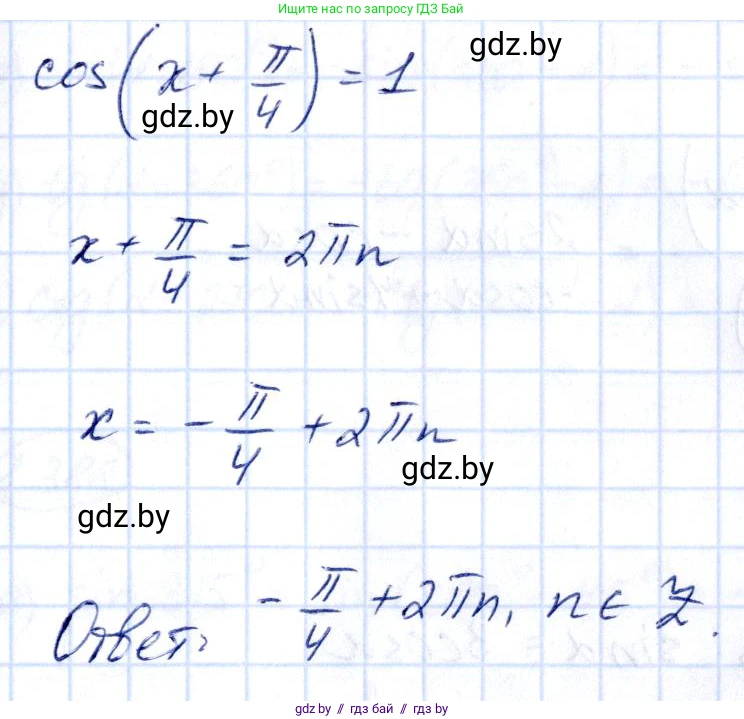 Ищите нас по запросу ГДЗ Бай
gdz.by
cos(x + π/4) = 1
gdz.by
x + π/4 = 2πn
x = - π/4 + 2πn
gdz.by
gdz.by
Ответ: - π/4 + 2πn, n ∈ Z.
gdz.by // гдз бай // гдз by